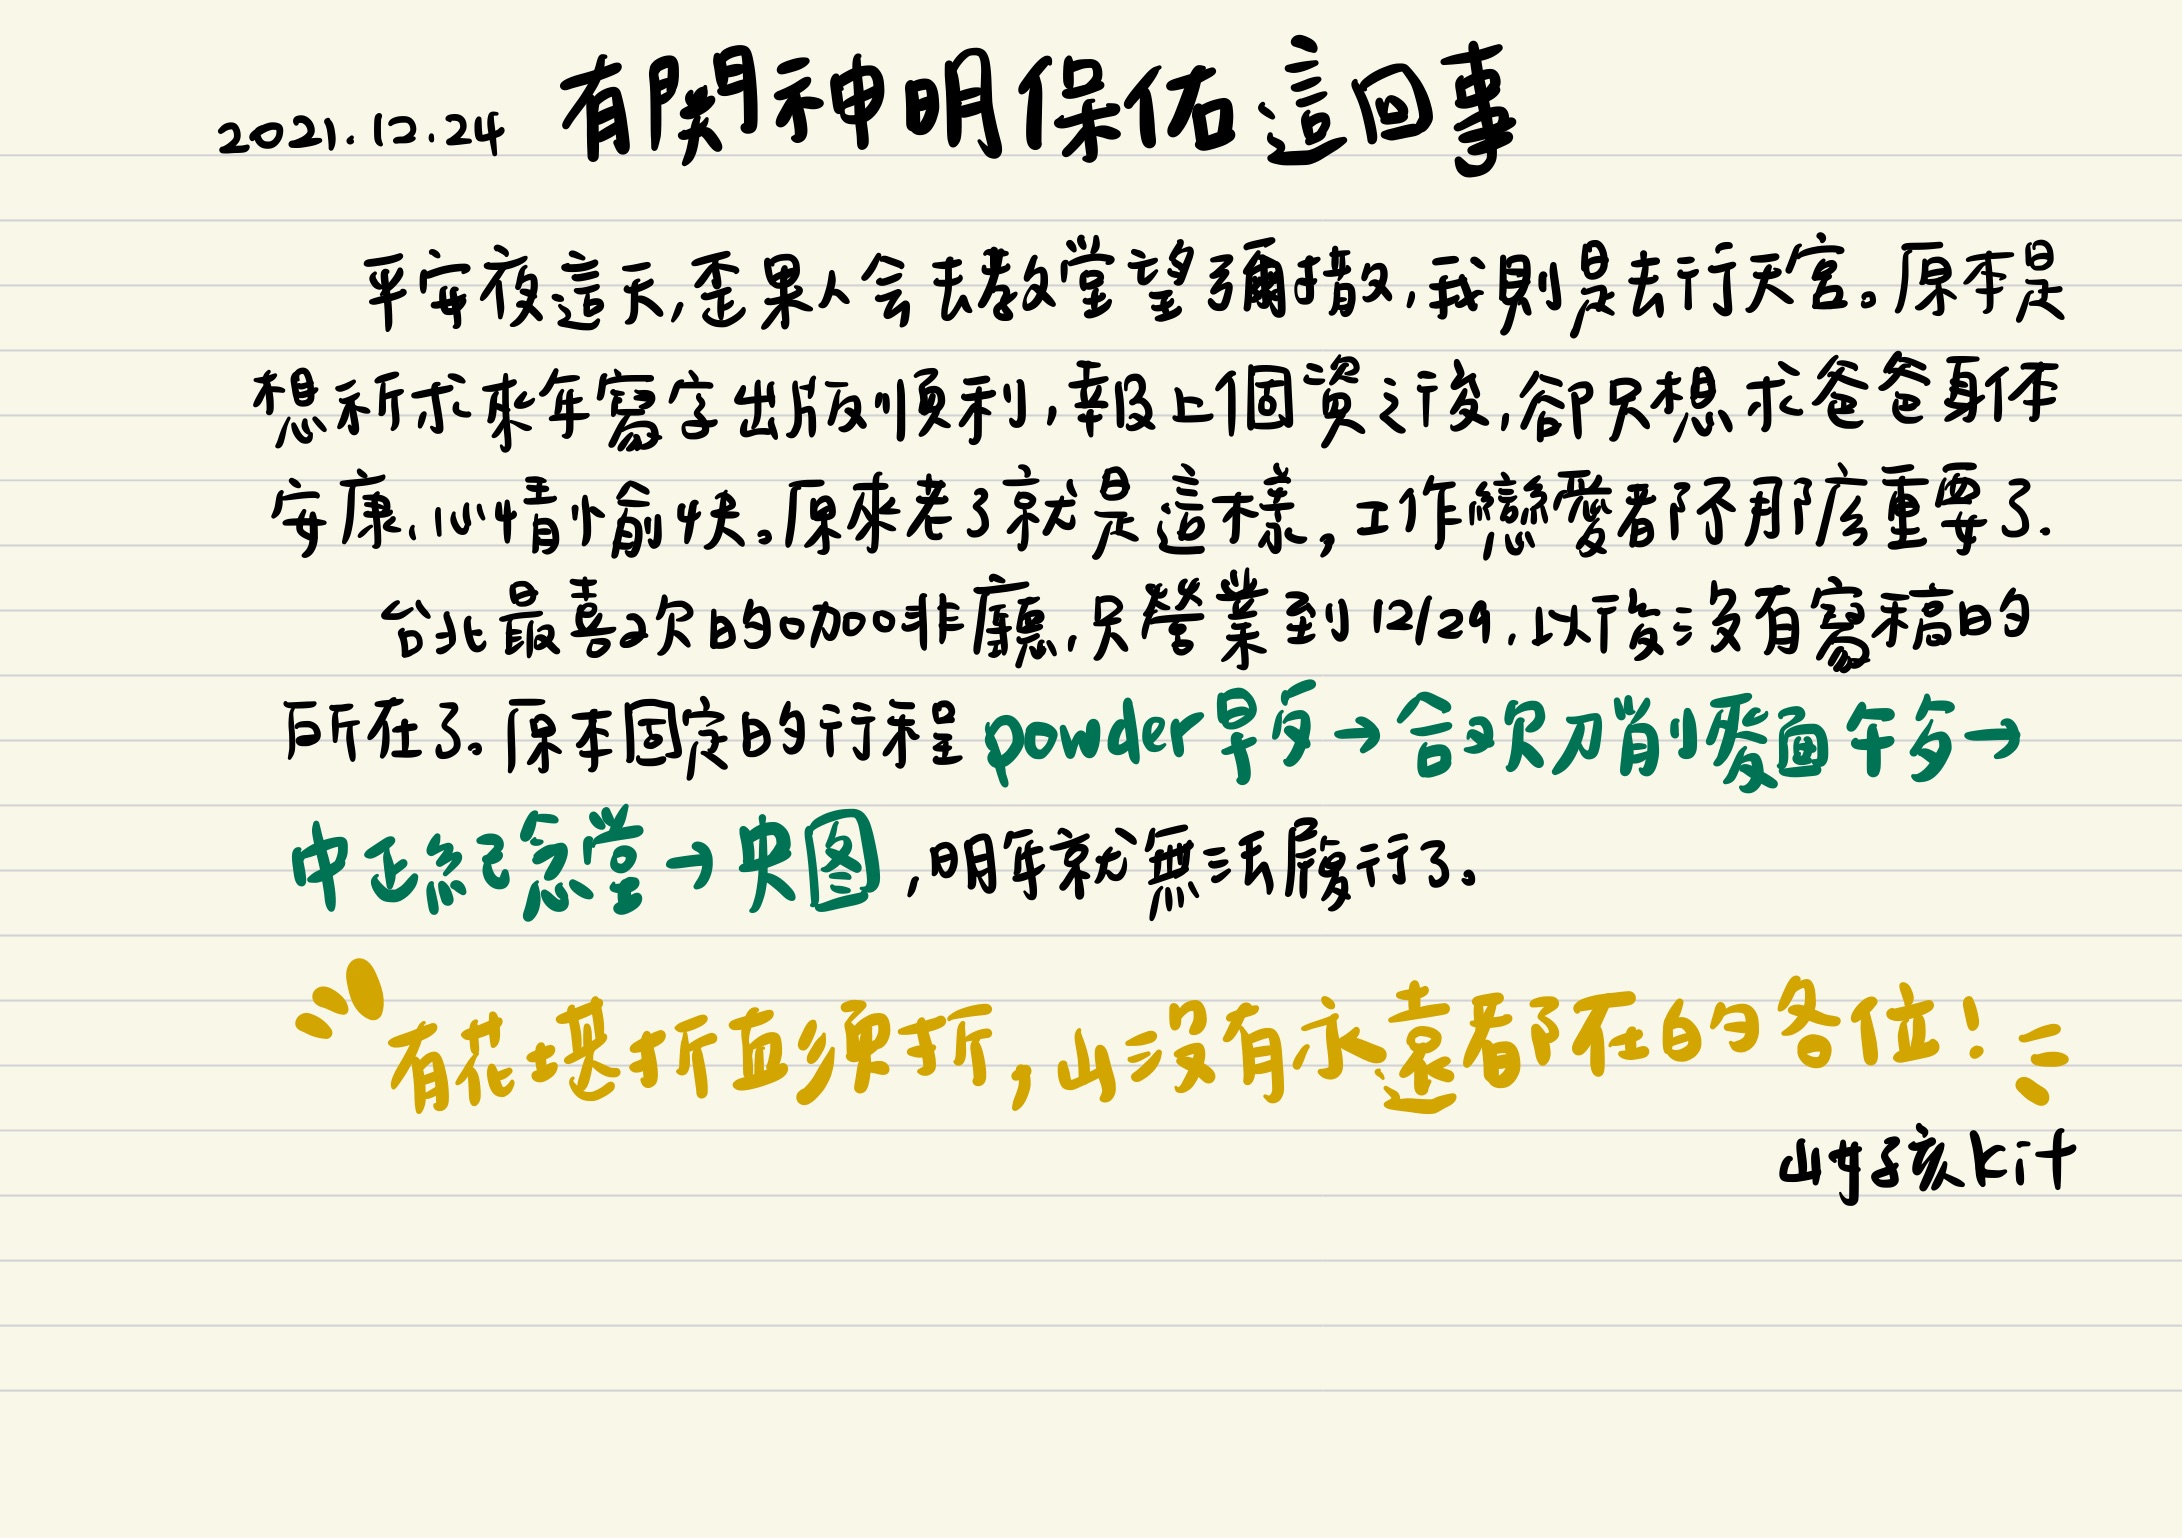 2021.12.24 有関神明保佑這回事
平安夜這天,歪果人会去教堂望彌撒,我則是去行天宮。原本是
想祈求來年寫字出版順利,報上個資之後,卻只想求爸爸身体
安康、心情愉快。原來老了就是這樣,工作戀愛都不那庅重要了.
台北最喜欢的咖啡廳,只營業到12/29,以後沒有寫稿的
所在了。原本固定的行程powder早多→合欢刀削麥面午多→
中正紀念堂→央图,明年就無法履行了。
有花堪折直須折,山沒有永遠都在的各位!
山女孩kit